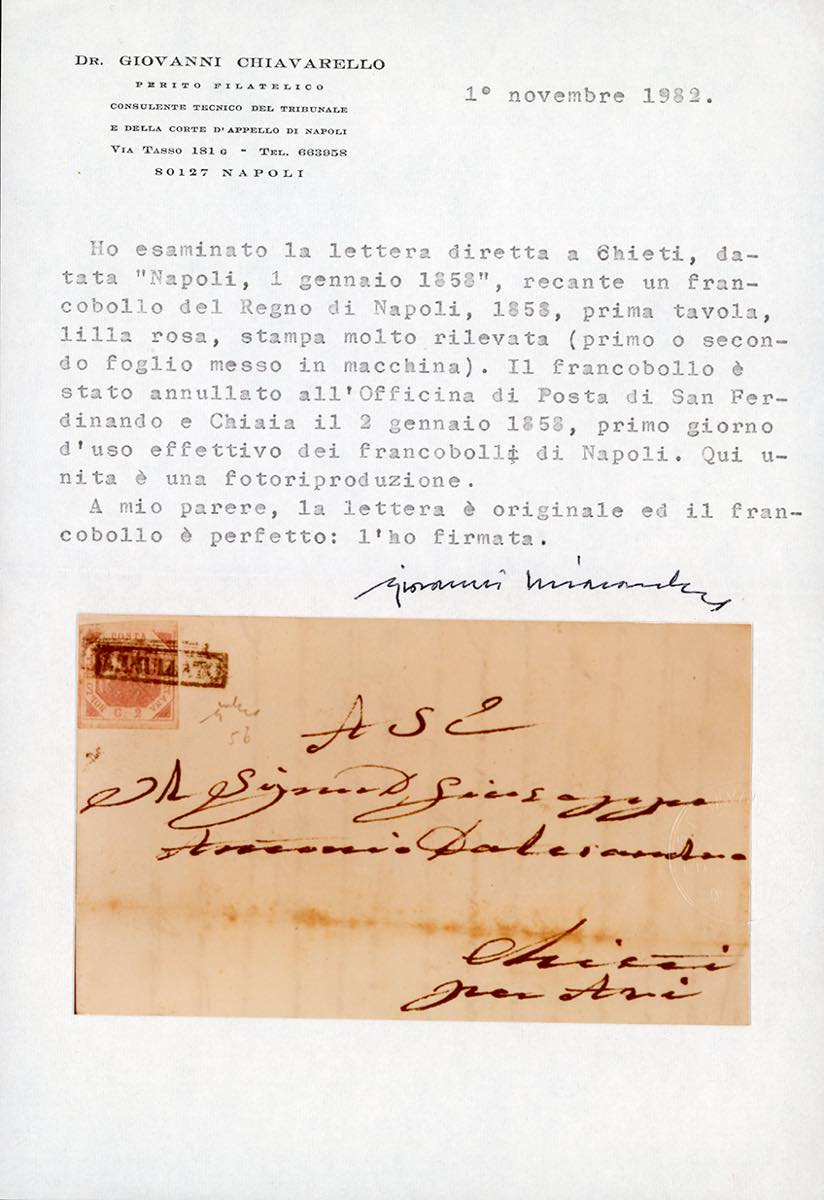 DR. GIOVANNI CHIAVARELLO
PERITO FILATELICO
CONSULENTE TECNICO DEL TRIBUNALE
E DELLA CORTE D'APPELLO DI NAPOLI
VIA TASSO 181 G - TEL. 663958
80127 NAPOLI
1° novembre 1982.
Ho esaminato la lettera diretta a Chieti, da-
tata "Napoli, 1 gennaio 1858", recante un fran-
cobollo del Regno di Napoli, 1858, prima tavola,
lilla rosa, stampa molto rilevata (primo o secon-
do foglio messo in macchina). Il francobollo è
stato annullato all'Officina di Posta di San Fer-
dinando e Chiaia il 2 gennaio 1858, primo giorno
d'uso effettivo dei francobolli di Napoli. Qui u-
nita è una fotoriproduzione.
A mio parere, la lettera è originale ed il fran-
cobollo è perfetto: l'ho firmata.
Giovanni Chiavarello
POSTA
ANNULLATO
G. 2
A S E
Al Sigr D. Giuseppe
Antonio Dalesandro
Chieti
per Ari